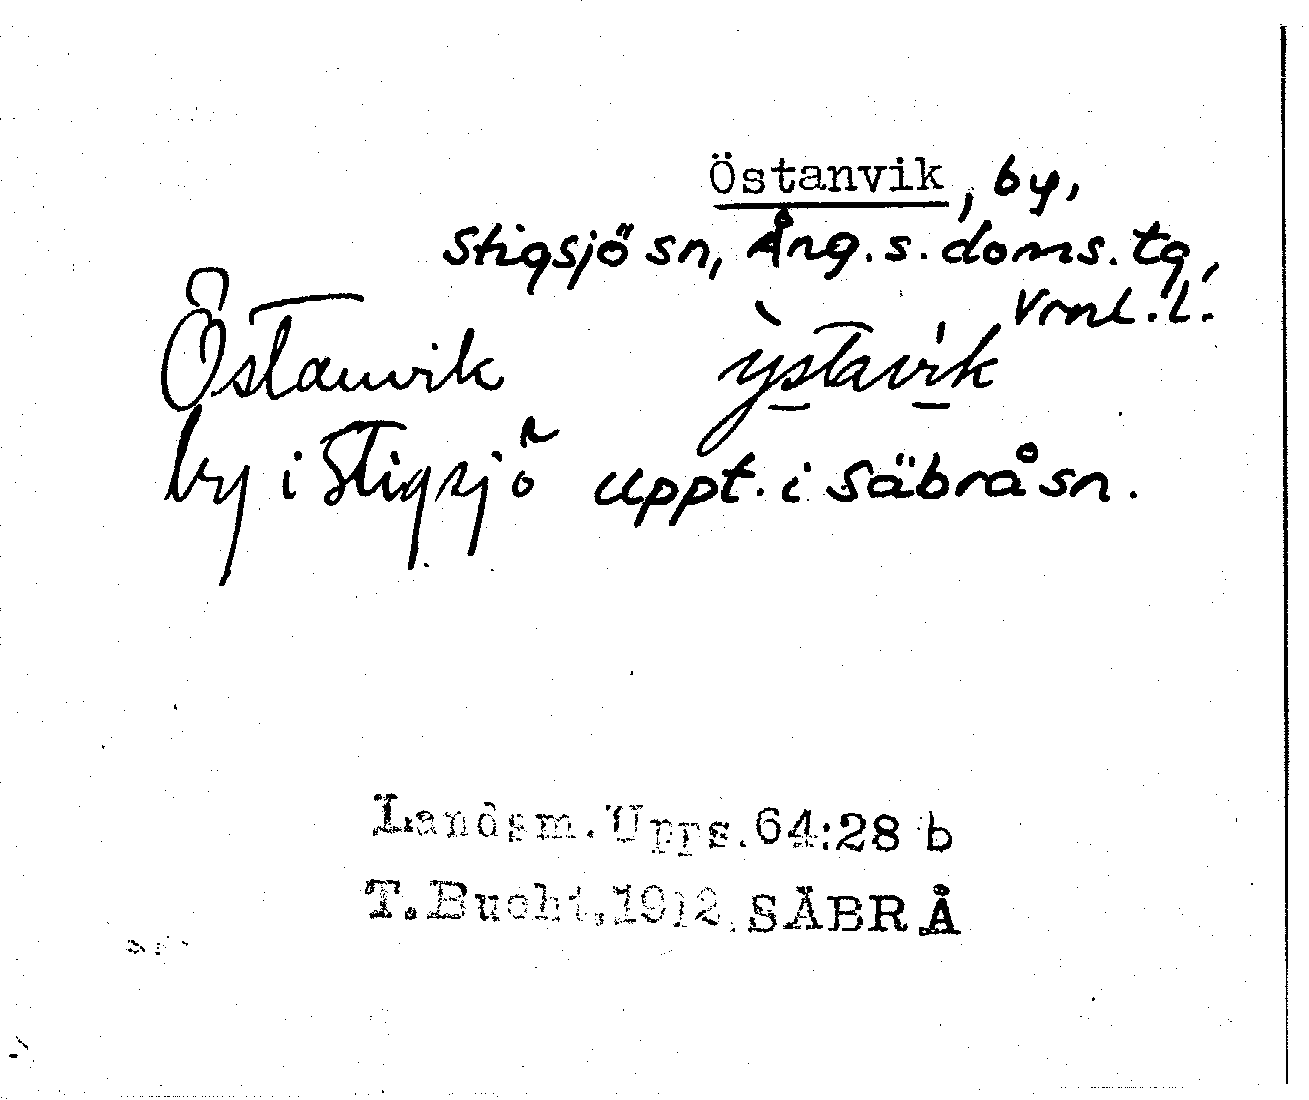 Östanvik, by,
Stigsjö sn, Ång. s. doms. tg,
Vrnl. l.
Östanvik ỳstavík
by i Stigsjö uppt. i Säbrå sn.
Landsm. Upps. 64:28 b
T. Bucht, 1912 SÄBRÅ